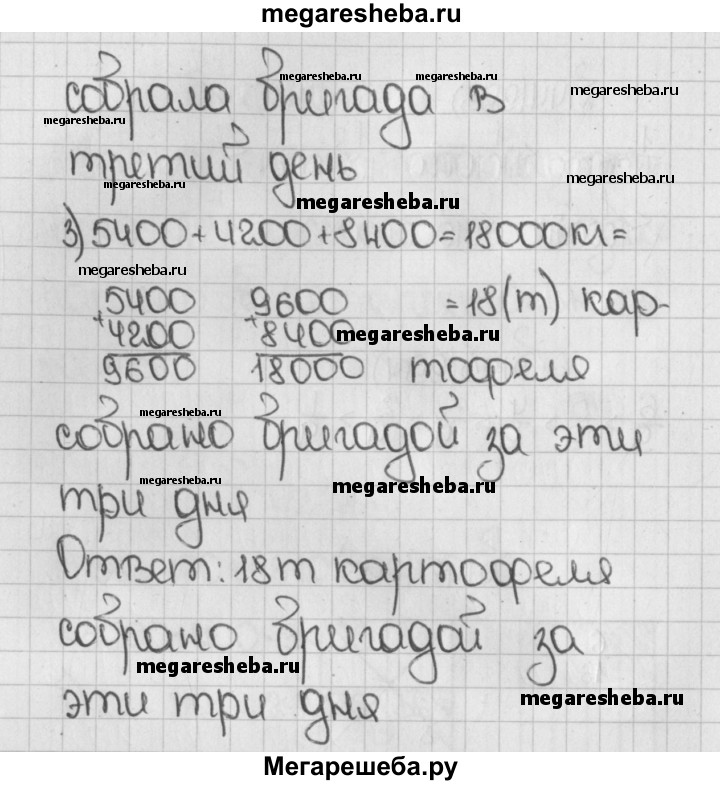 megaresheba.ru
собрала бригада в
megaresheba.ru megaresheba.ru megaresheba.ru
megaresheba.ru
третий день
megaresheba.ru megaresheba.ru
megaresheba.ru
3) 5400+4200+8400=18000кг=
megaresheba.ru
5400 9600 =18(т) кар-
+4200 +8400 megaresheba.ru
9600 18000 тофеля
megaresheba.ru
собрано бригадой за эти
megaresheba.ru megaresheba.ru
три дня
Ответ: 18т картофеля
собрано бригадой за
megaresheba.ru
эти три дня megaresheba.ru
Мегарешеба.ру